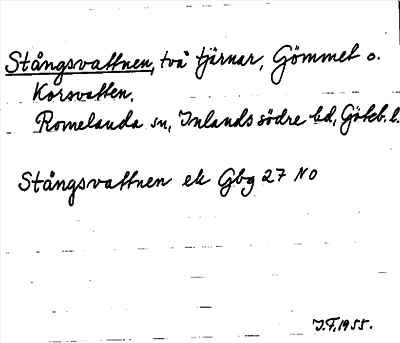 Stångsvattnen, två tjärnar, Gömmet o.
Korsvatten.
Romelanda sn, Inlands södre hd, Göteb. l.
Stångsvattnen ek Gbg 27 NO
J.F. 1955.